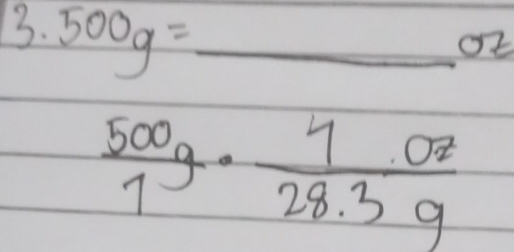 3. 500g = ________ oz
500g/1 · 1 oz/28.3 g